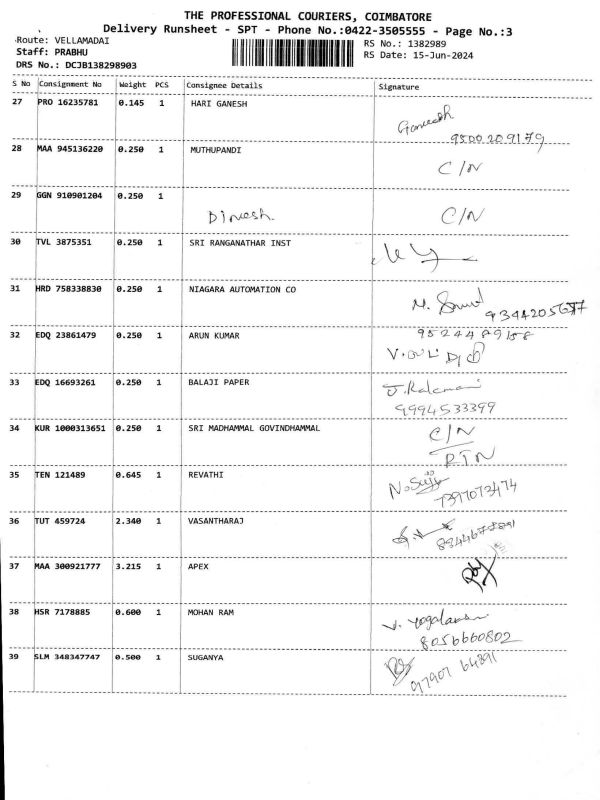 THE PROFESSIONAL COURIERS, COIMBATORE
Delivery Runsheet - SPT - Phone No.:0422-3505555 - Page No.:3
Route: VELLAMADAI
RS No.: 1382989
Staff: PRABHU
RS Date: 15-Jun-2024
DRS No.: DCJB138298903
S No Consignment No Weight PCS Consignee Details Signature
27 PRO 16235781 0.145 1 HARI GANESH
Ganesh
9500209179
28 MAA 945136220 0.250 1 MUTHUPANDI
C/N
29 GGN 910901204 0.250 1
Dinesh. C/N
30 TVL 3875351 0.250 1 SRI RANGANATHAR INST
31 HRD 758338830 0.250 1 NIAGARA AUTOMATION CO
M.
32 EDQ 23861479 0.250 1 ARUN KUMAR
33 EDQ 16693261 0.250 1 BALAJI PAPER
9994533399
34 KUR 1000313651 0.250 1 SRI MADHAMMAL GOVINDHAMMAL
C/N
RTN
35 TEN 121489 0.645 1 REVATHI
7397073474
36 TUT 459724 2.340 1 VASANTHARAJ
37 MAA 300921777 3.215 1 APEX
38 HSR 7178885 0.600 1 MOHAN RAM
8056660802
39 SLM 348347747 0.500 1 SUGANYA
97907 64891